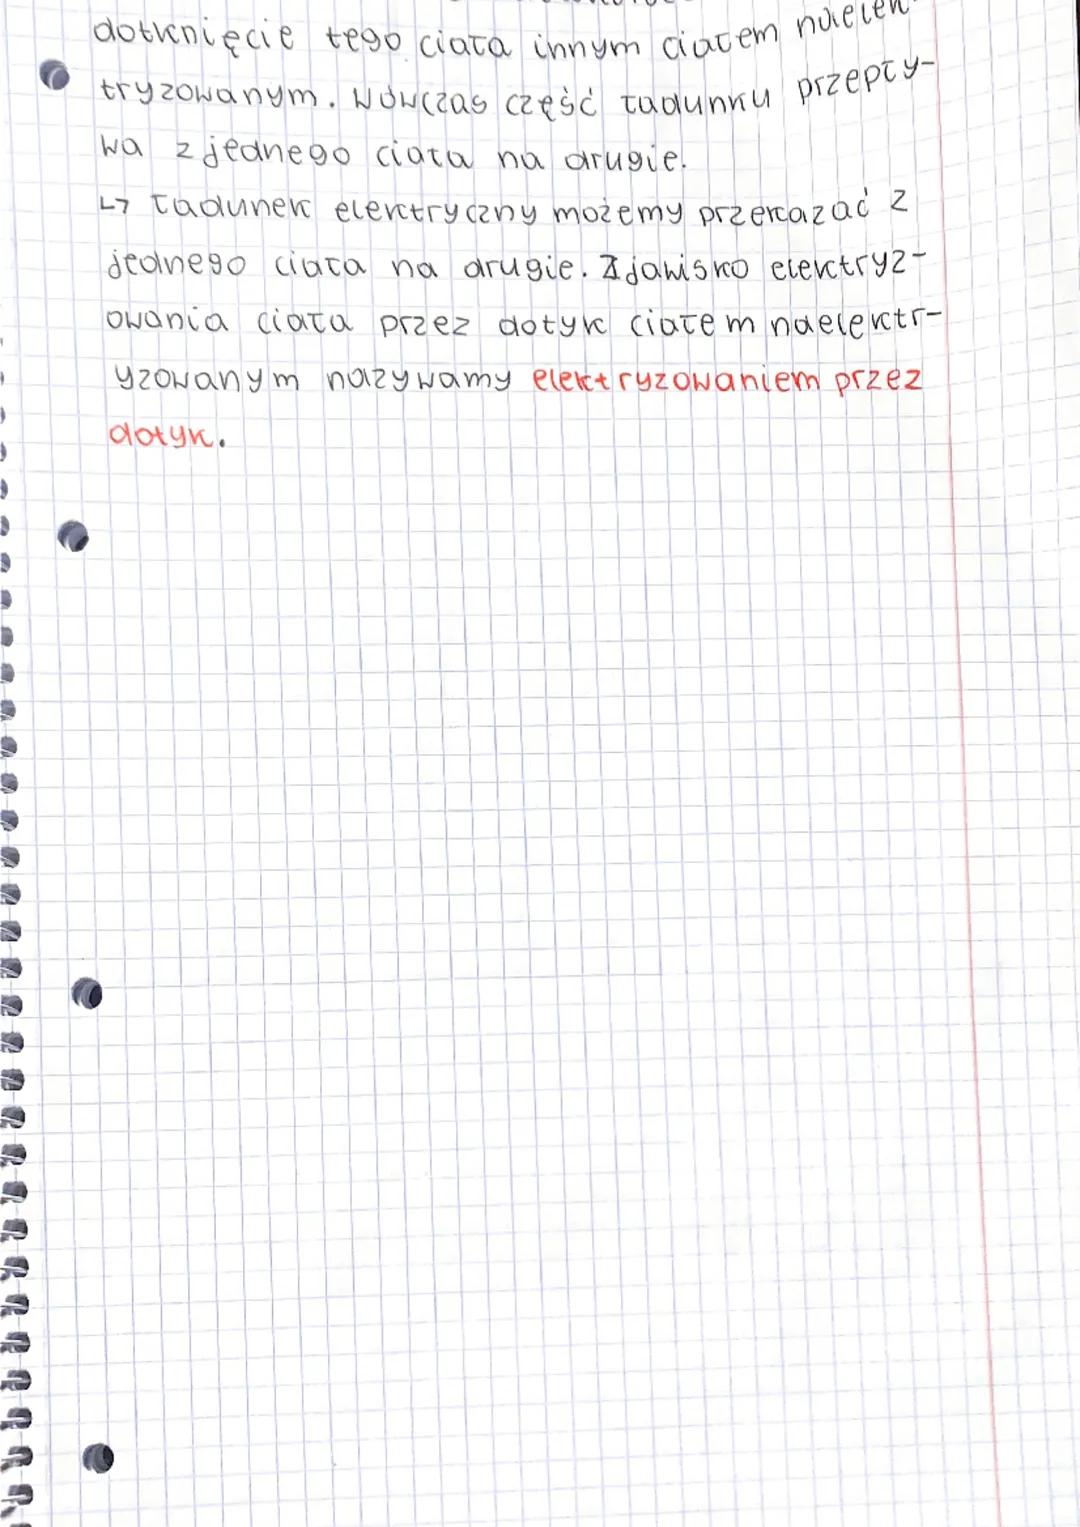 dotknięcie tego ciała innym ciałem naelek-
tryzowanym. Wówczas część ładunku przepły-
wa z jednego ciała na drugie.
↳ Ładunek elektryczny możemy przekazać z
jednego ciała na drugie. Zjawisko elektryz-
owania ciała przez dotyk ciałem naelektr-
yzowanym nazywamy elektryzowaniem przez
dotyk.